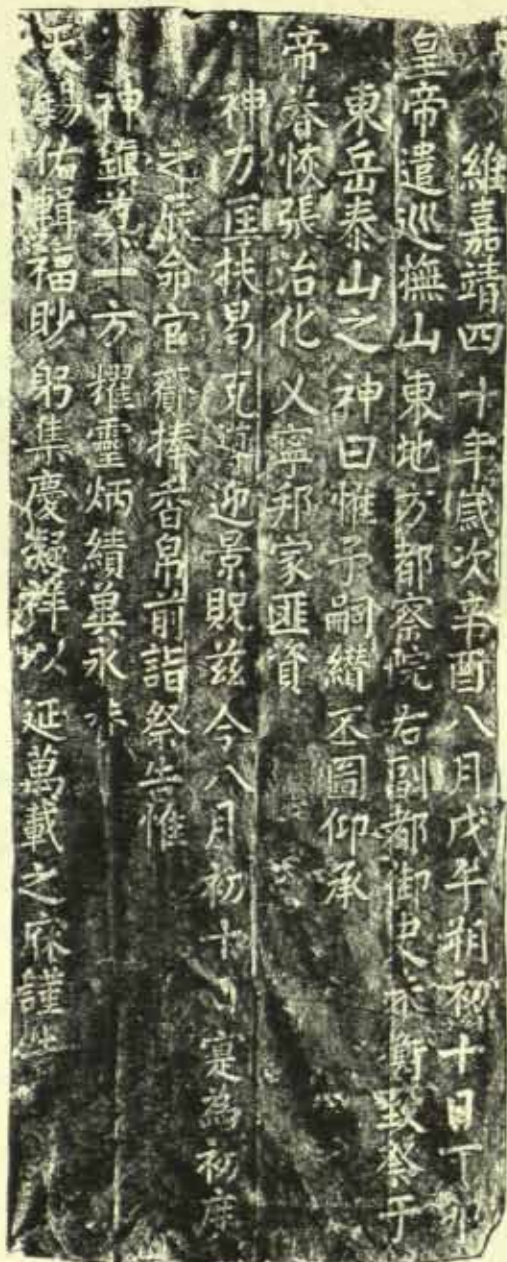 維嘉靖四十年歲次辛酉八月戊午朔初十日丁卯
皇帝遣巡撫山東地方都察院右副都御史朱衡致祭于
東岳泰山之神曰惟予嗣纘丕圖仰承
帝眷恢張治化乂寧邦家匪資
神力匡扶曷克迎景貺茲今八月初十日寔為初度
之辰命官齎捧香帛前詣祭告惟
神一方耀靈炳績冀永
天錫佑輯福眇躬集慶凝祥以延萬載之庥謹告